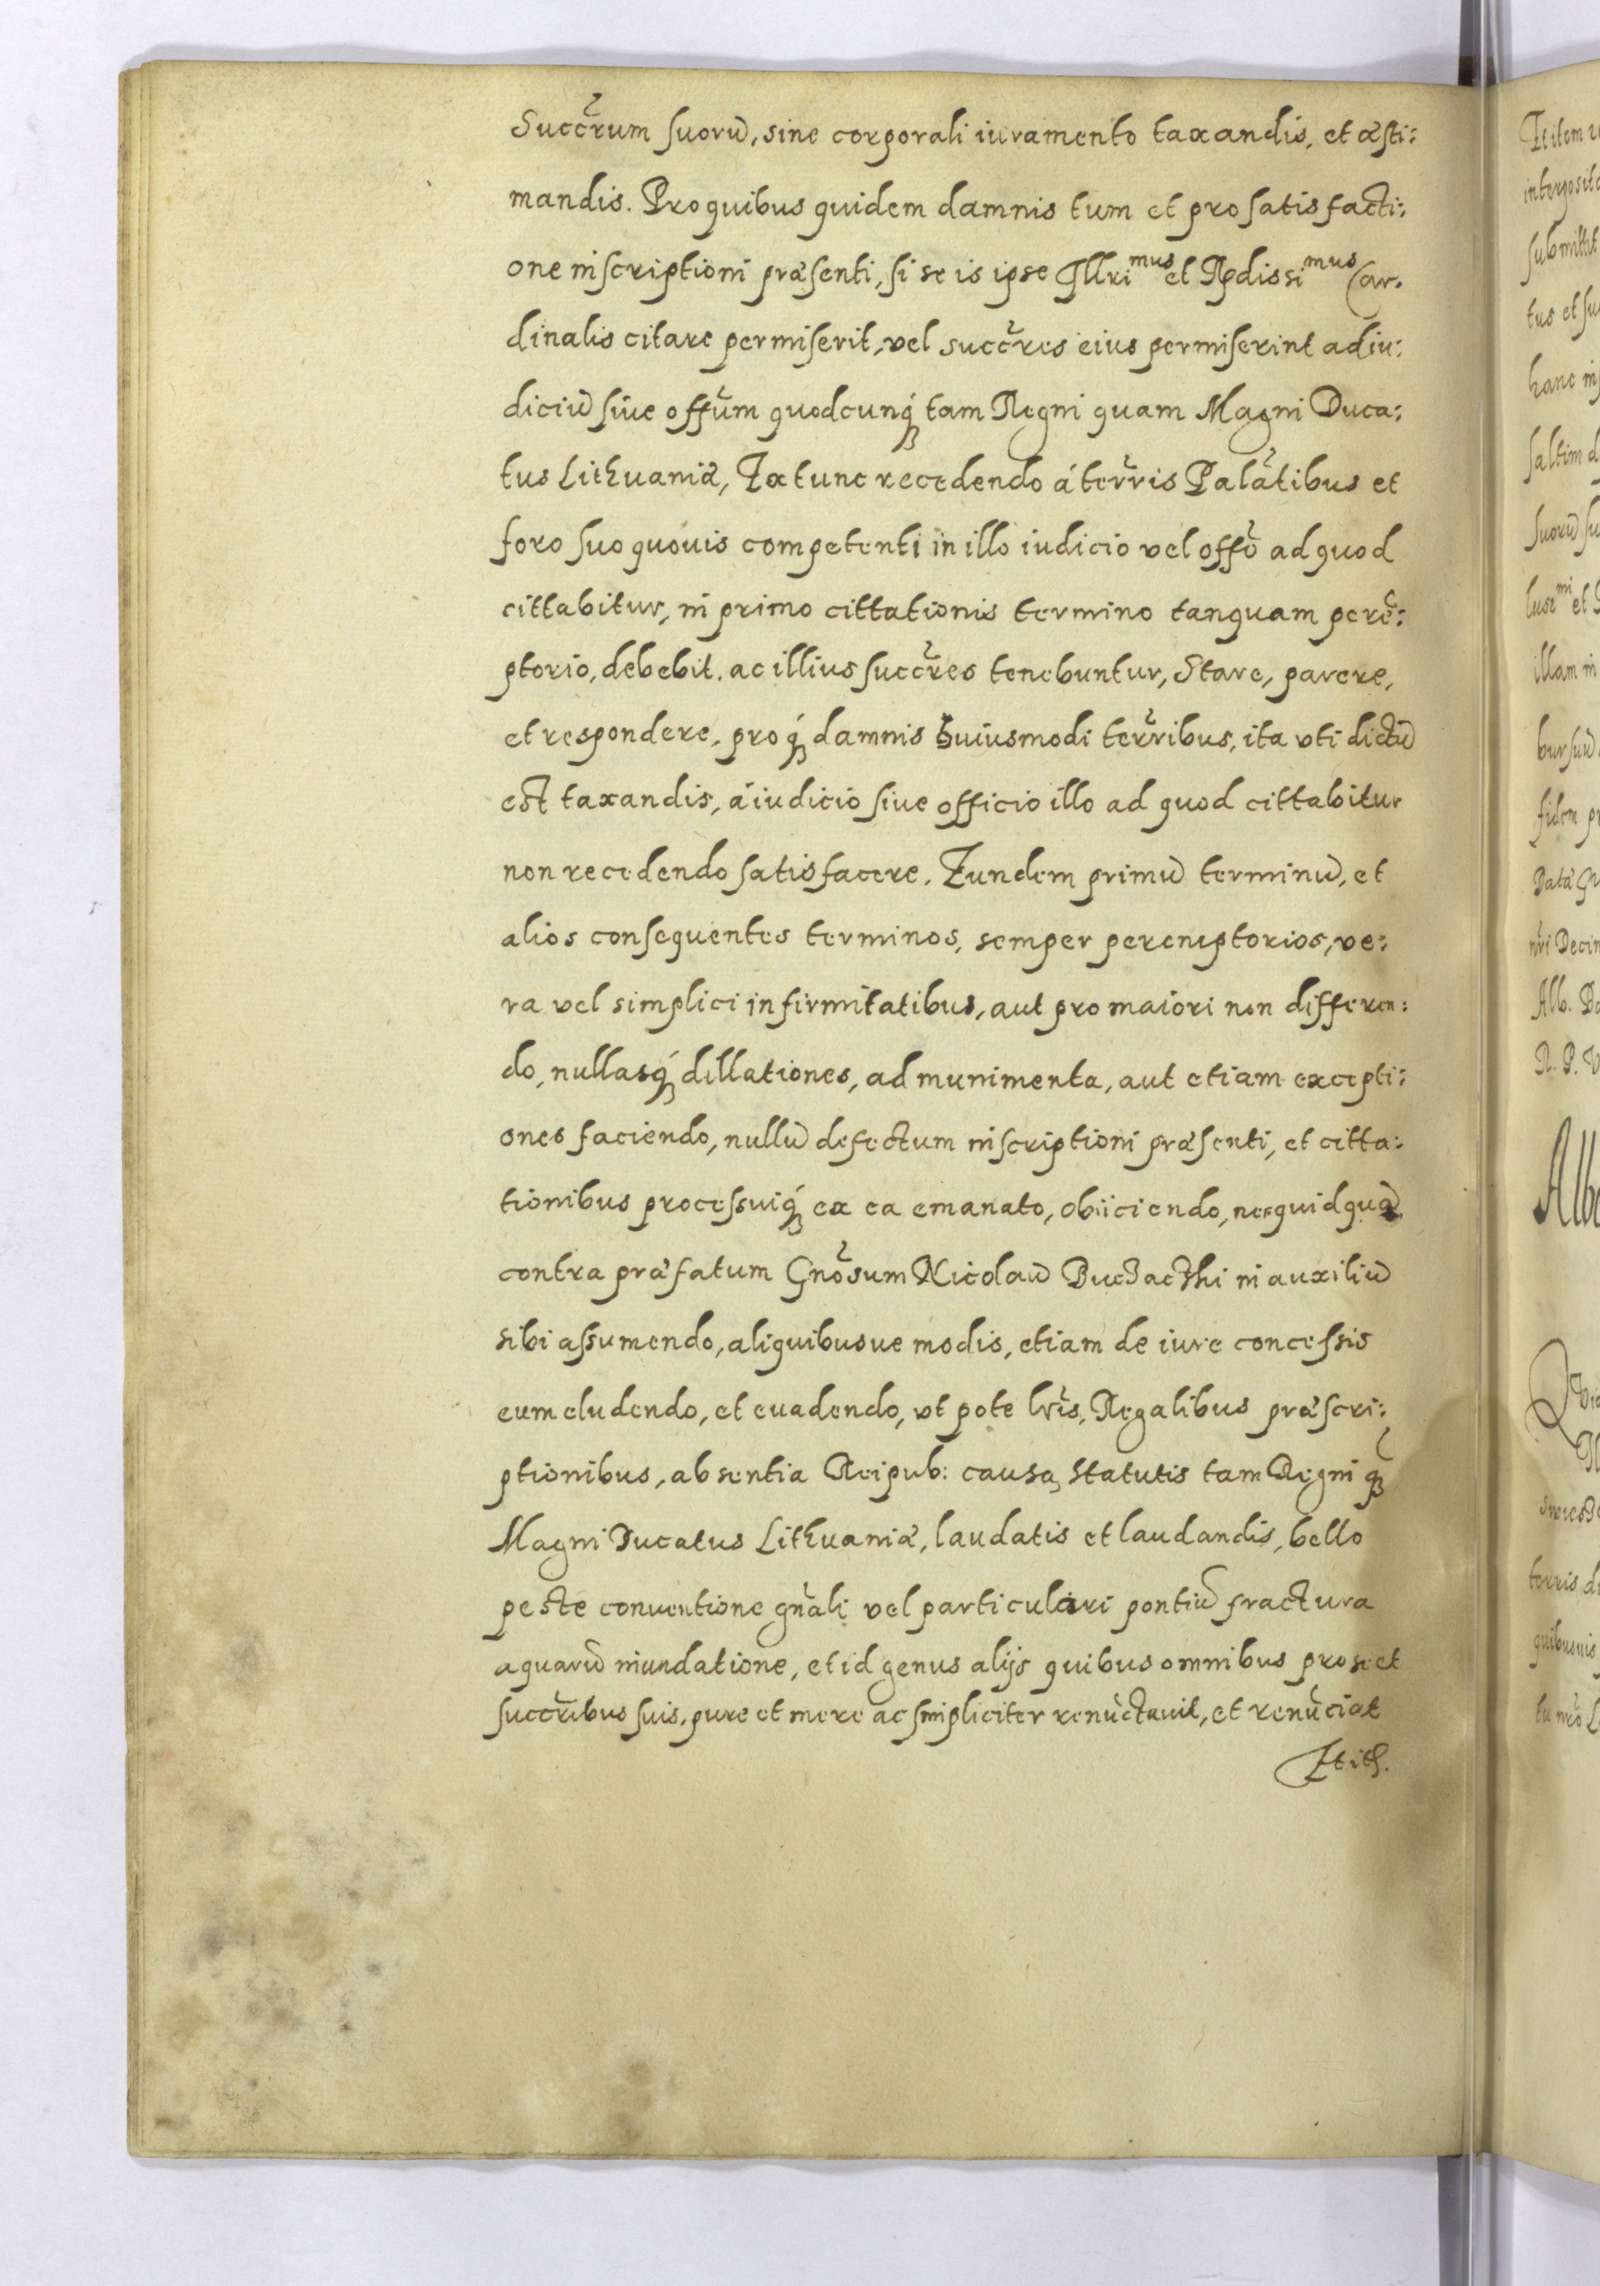 Succrum suorũ, sine corporali iuramento taxandis, et æsti:
mandis. Pro quibus quidem damnis tum et pro satisfacti:
one inscriptioni præsenti, si se is ipse Illri^mus et Rdissi^mus Car:
dinalis citare permiserit, vel succres eius permiserint ad iu:
diciũ siue offum quodcunq́ tam Regni quam Magni Duca:
tus Lithuaniæ, Extunc recedendo á terris Palatibus et
foro suo quouis competenti in illo iudicio vel offo ad quod
cittabitur, in primo cittationis termino tanquam pere:
ptorio, debebit. ac illius succres tenebuntur, Stare, parere,
et respondere, proq́ damnis huiusmodi terribus, ita vti dictũ
est taxandis, á iudicio siue officio illo ad quod cittabitur
non recedendo satisfacere. Eundem primũ terminũ, et
alios consequentes terminos, semper peremptorios, ve:
ra vel simplici infirmitatibus, aut pro maiori non differen:
do, nullasq́ dillationes, ad munimenta, aut etiam excepti:
ones faciendo, nullũ defectum inscriptioni præsenti, et citta:
tionibus processuiq́ ex ea emanato, obiiciendo, nequidquã
contra præfatum Gnosum Nicolaũ in auxiliũ
sibi assumendo, aliquibusue modis, etiam de iure concessis
eum eludendo, et euadendo, vt pote lris, Regalibus præscri:
ptionibus, absentia Reipub: causa, statutis tam Regni q̃
Magni Ducatus Lithuaniæ, laudatis et laudandis, bello
peste conuentione gnali vel particulari pontiũ fractura
aquarũ inundatione, et id genus alijs quibus omnibus pro se et
succribus suis, pure et mere ac simpliciter renũctauit, et renũciat
Et ith.